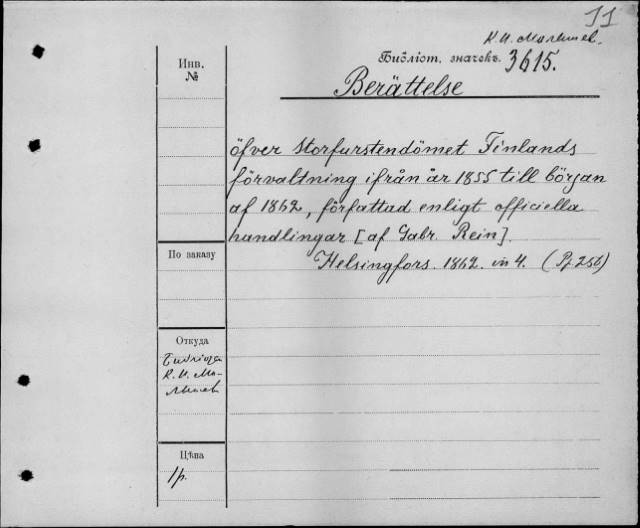 11
К. И. Малышев.
Библіот. значекъ. 3615.
Инв.
№
Berättelse
öfver Storfurstendömet Finlands
förvaltning ifrån år 1855 till början
af 1862, författad enligt officiella
handlingar [af Gabr. Rein].
По заказу
Helsingfors. 1862. in 4. (256)
Откуда
К. И. Ма-
лышев
Цѣна
1р.